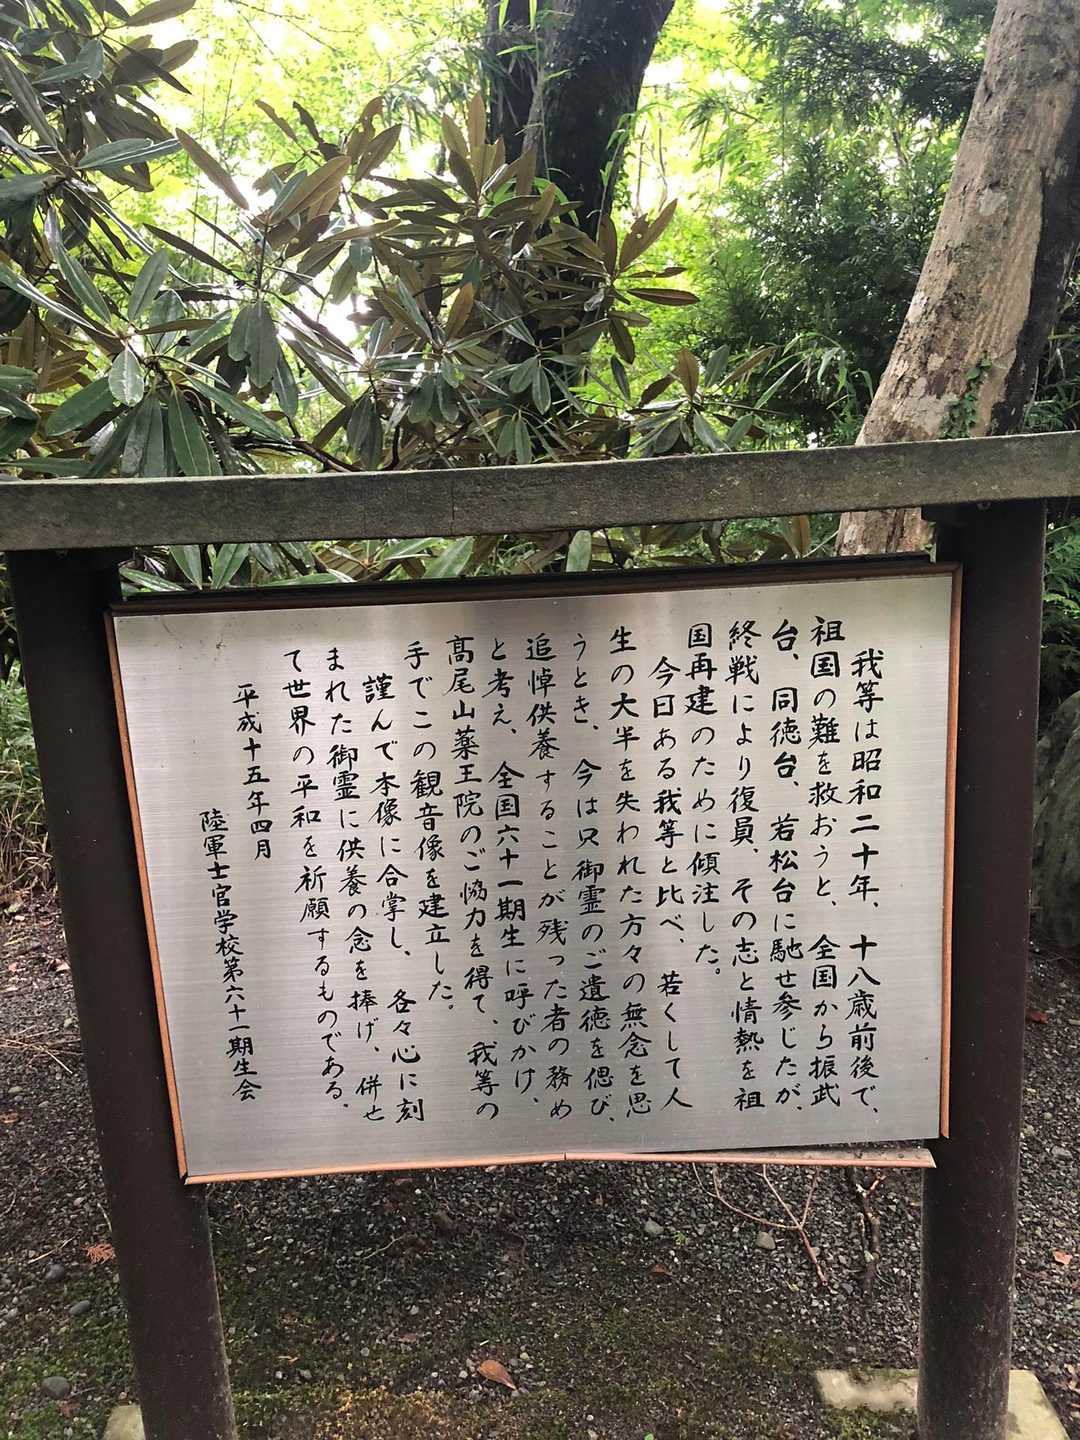 我等は昭和二十年、十八歳前後で、
祖国の難を救おうと、全国から振武
台、同徳台、若松台に馳せ参じたが、
終戦により復員、その志と情熱を祖
国再建のために傾注した。
今日ある我等と比べ、若くして人
生の大半を失われた方々の無念を思
うとき、今は只御霊のご遺徳を偲び、
追悼供養することが残った者の務め
と考え、全国六十一期生に呼びかけ、
高尾山薬王院のご協力を得て、我等の
手でこの観音像を建立した。
謹んで本像に合掌し、各々心に刻
まれた御霊に供養の念を捧げ、併せ
て世界の平和を祈願するものである。
平成十五年四月
陸軍士官学校第六十一期生会